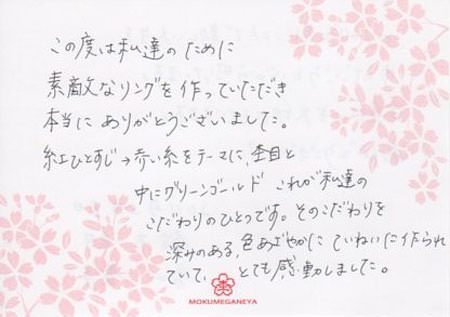 この度は私達のために
素敵なリングを作っていただき
本当にありがとうございました。
紅ひとすじ→赤い糸をテーマに、杢目と
中にグリーンゴールド これが私達の
こだわりのひとつです。そのこだわりを
深みのある、色あざやかに ていねいに作られ
ていて、とても感動しました。
MOKUMEGANEYA